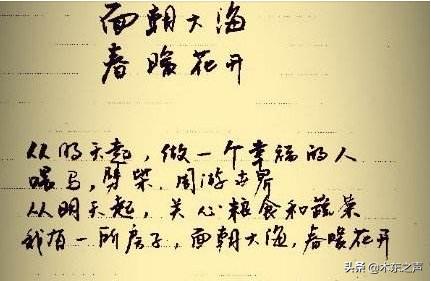 面朝大海
春暖花开
从明天起，做一个幸福的人
喂马，劈柴，周游世界
从明天起，关心粮食和蔬菜
我有一所房子，面朝大海，春暖花开
头条 @木东之声